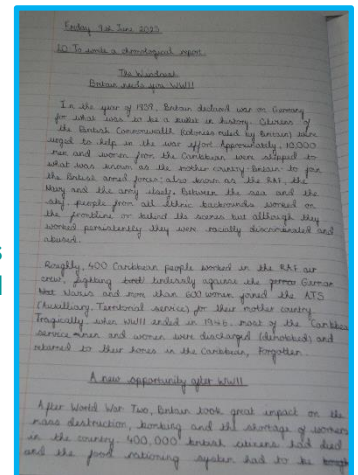 Friday 9th June 2023
LO To write a chronological report
The Windrush
Britain needs you: WWII
In the year of 1939, Britain declared war on Germany
for what was to be a battle in history. Citizens of
the British Commonwealth (colonies ruled by Britain) were
urged to help in the war effort. Approximately, 10,000
men and women from the Caribbean were shipped to
what was known as the mother country - Britain - to join
the British armed forces: also known as the RAF, the
Navy and the army. Between the sea and the
sky, people from all ethnic backrounds worked on
the frontline or behind the scenes but although they
worked persistently they were racially discriminated and
abused.
Roughly, 400 Caribbean people worked in the RAF air
crew, fighting tirelessly against the German
Nazis and more than 600 women joined the ATS
(Auxilliary Territorial service) for their mother country
Tragically, when WWII ended in 1945, most of the Caribbean
service men and women were discharged (demobbed) and
returned to their homes in the Caribbean, Forgotten.
A new opportunity after WWII
After World War Two, Britain took great impact on the
mass destruction, bombing and the shortage of workers
in the country. 400,000 british citizens had died
and the food rationing system had to be